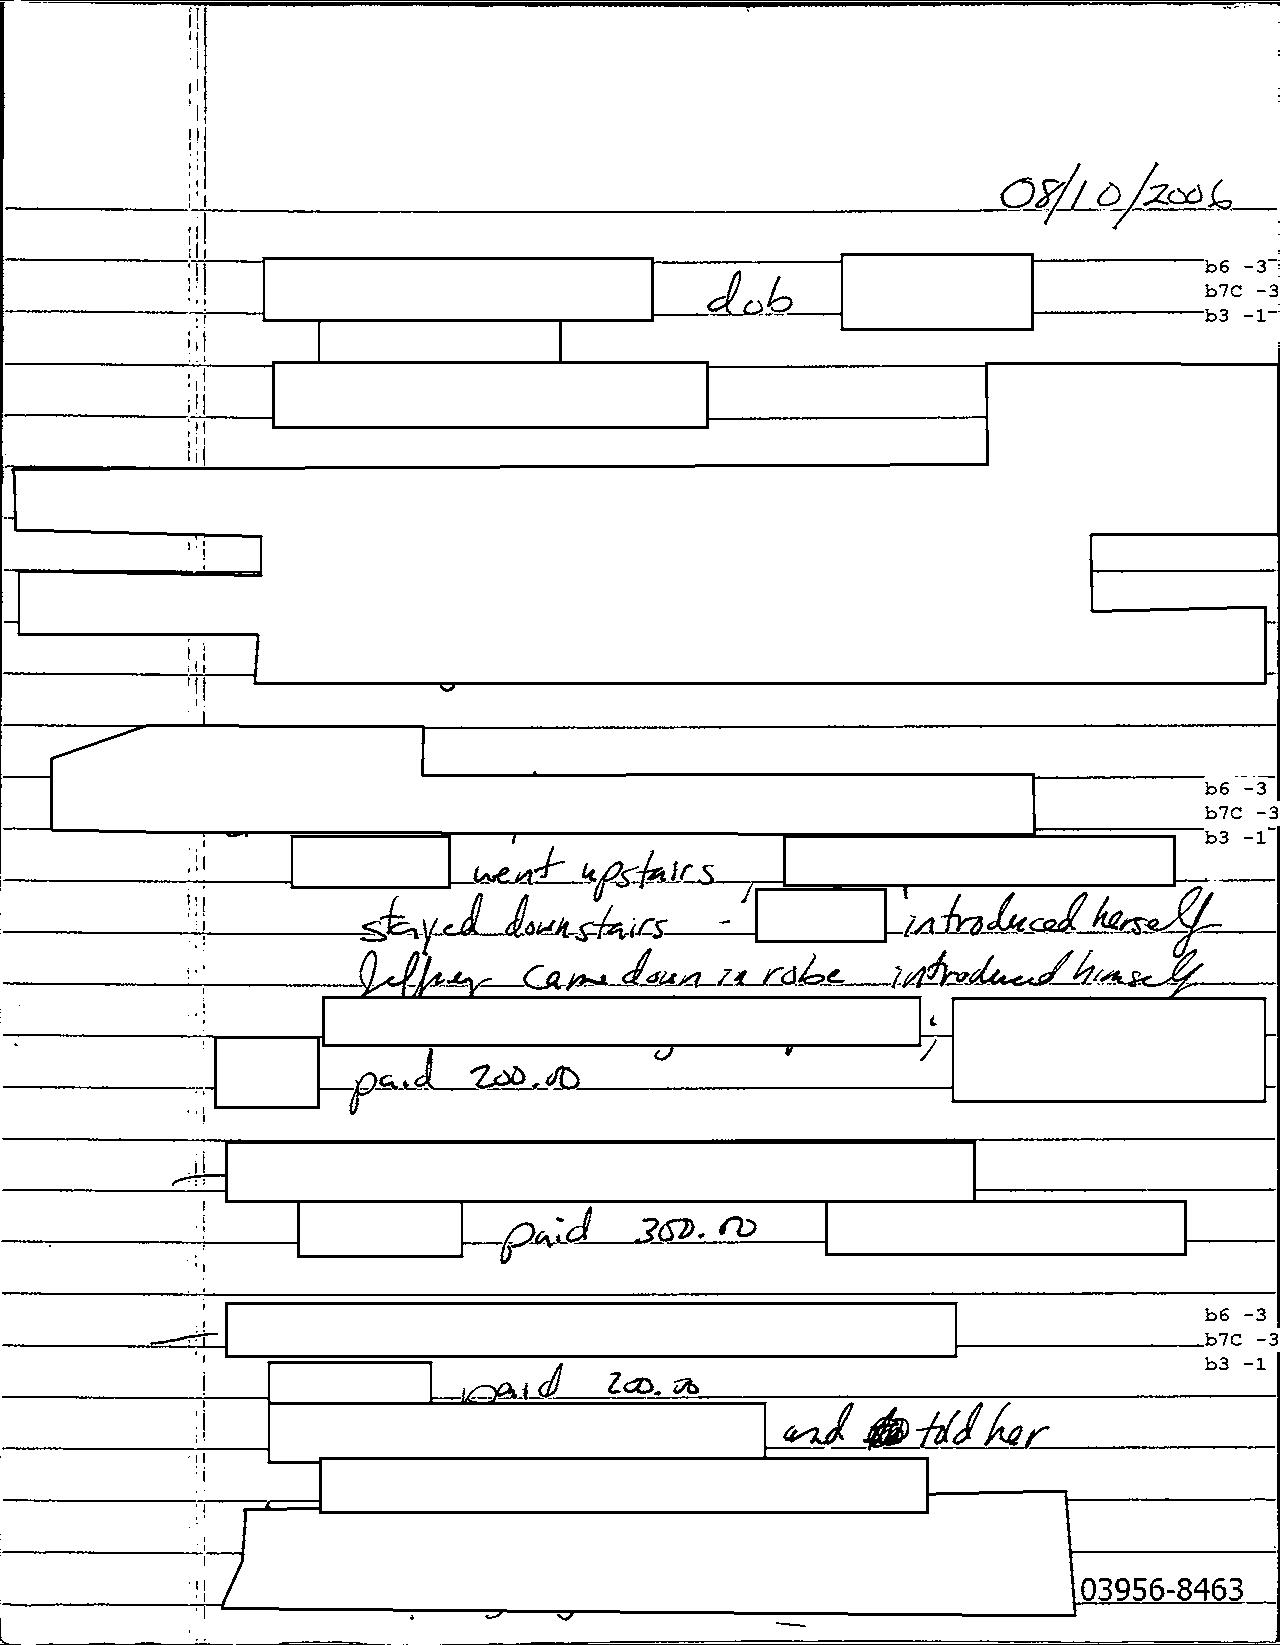 08/10/2006
dob
b6 -3
b7C -3
b3 -1
b6 -3
b7C -3
b3 -1
went upstairs
stayed downstairs - introduced herself
Jeffrey came down in robe introduced himself
;
paid 200.00
paid 300.00
b6 -3
b7C -3
b3 -1
paid 200.00
and told her
03956-8463